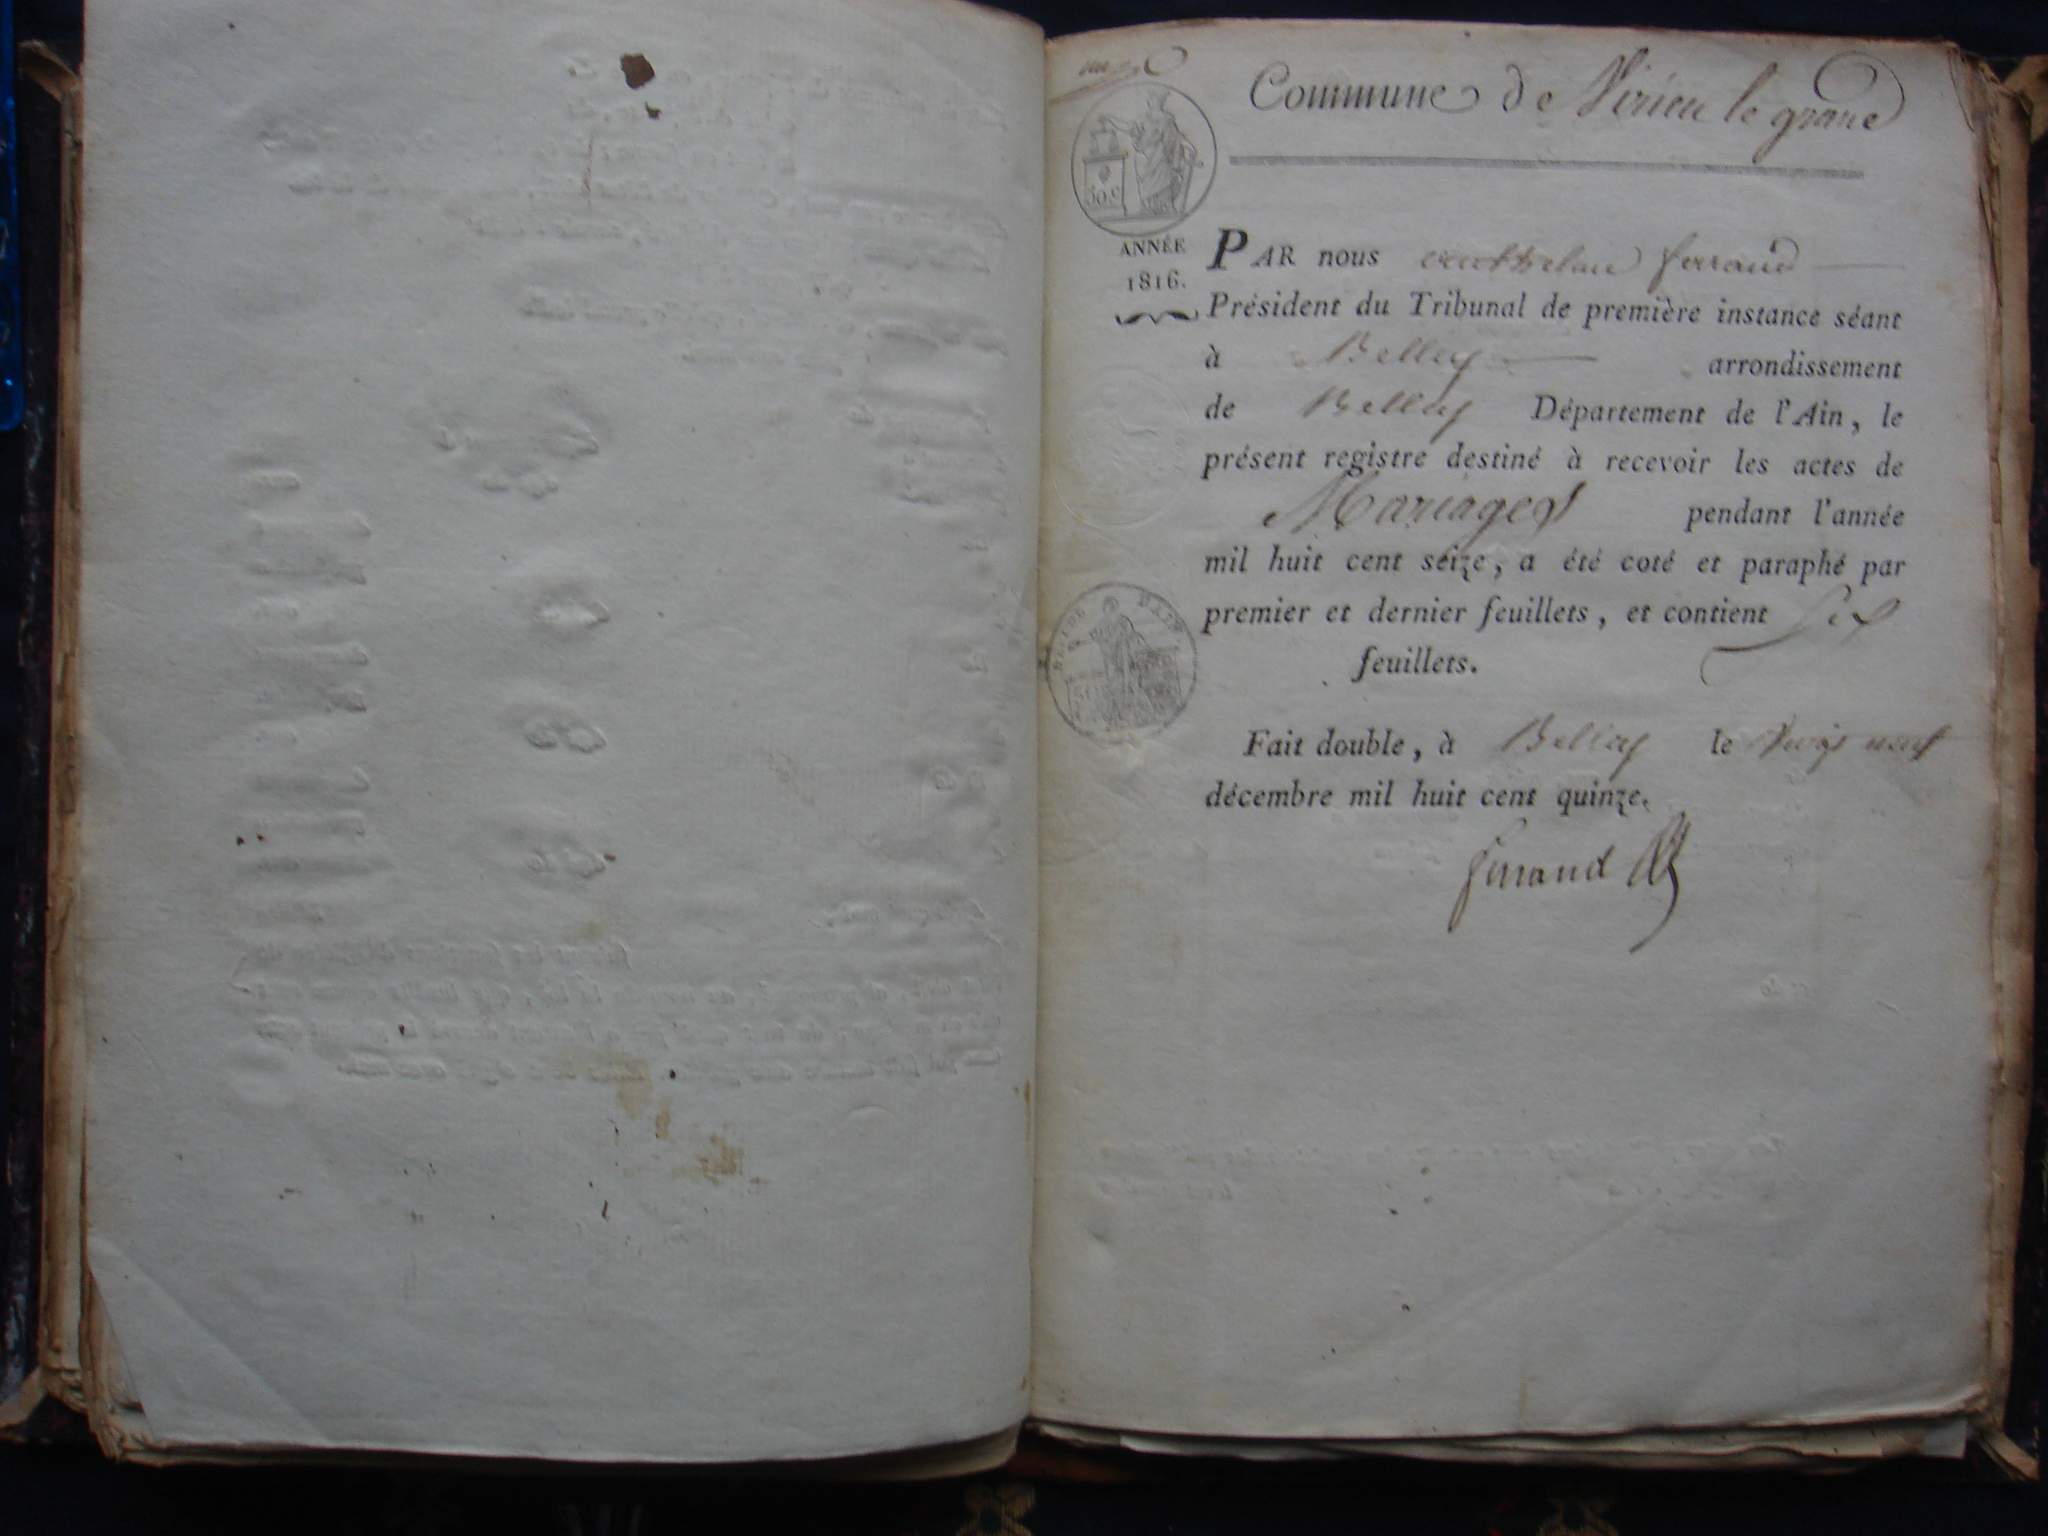 Commune de Virieu le grand
50 c
ANNÉE
1816.
PAR nous ferrand
Président du Tribunal de première instance séant
à Belley arrondissement
de Belley Département de l'Ain, le
présent registre destiné à recevoir les actes de
Mariages pendant l'année
mil huit cent seize, a été coté et paraphé par
premier et dernier feuillets, et contient six
feuillets.
Fait double, à Belley le neuf
décembre mil huit cent quinze.
ferrand